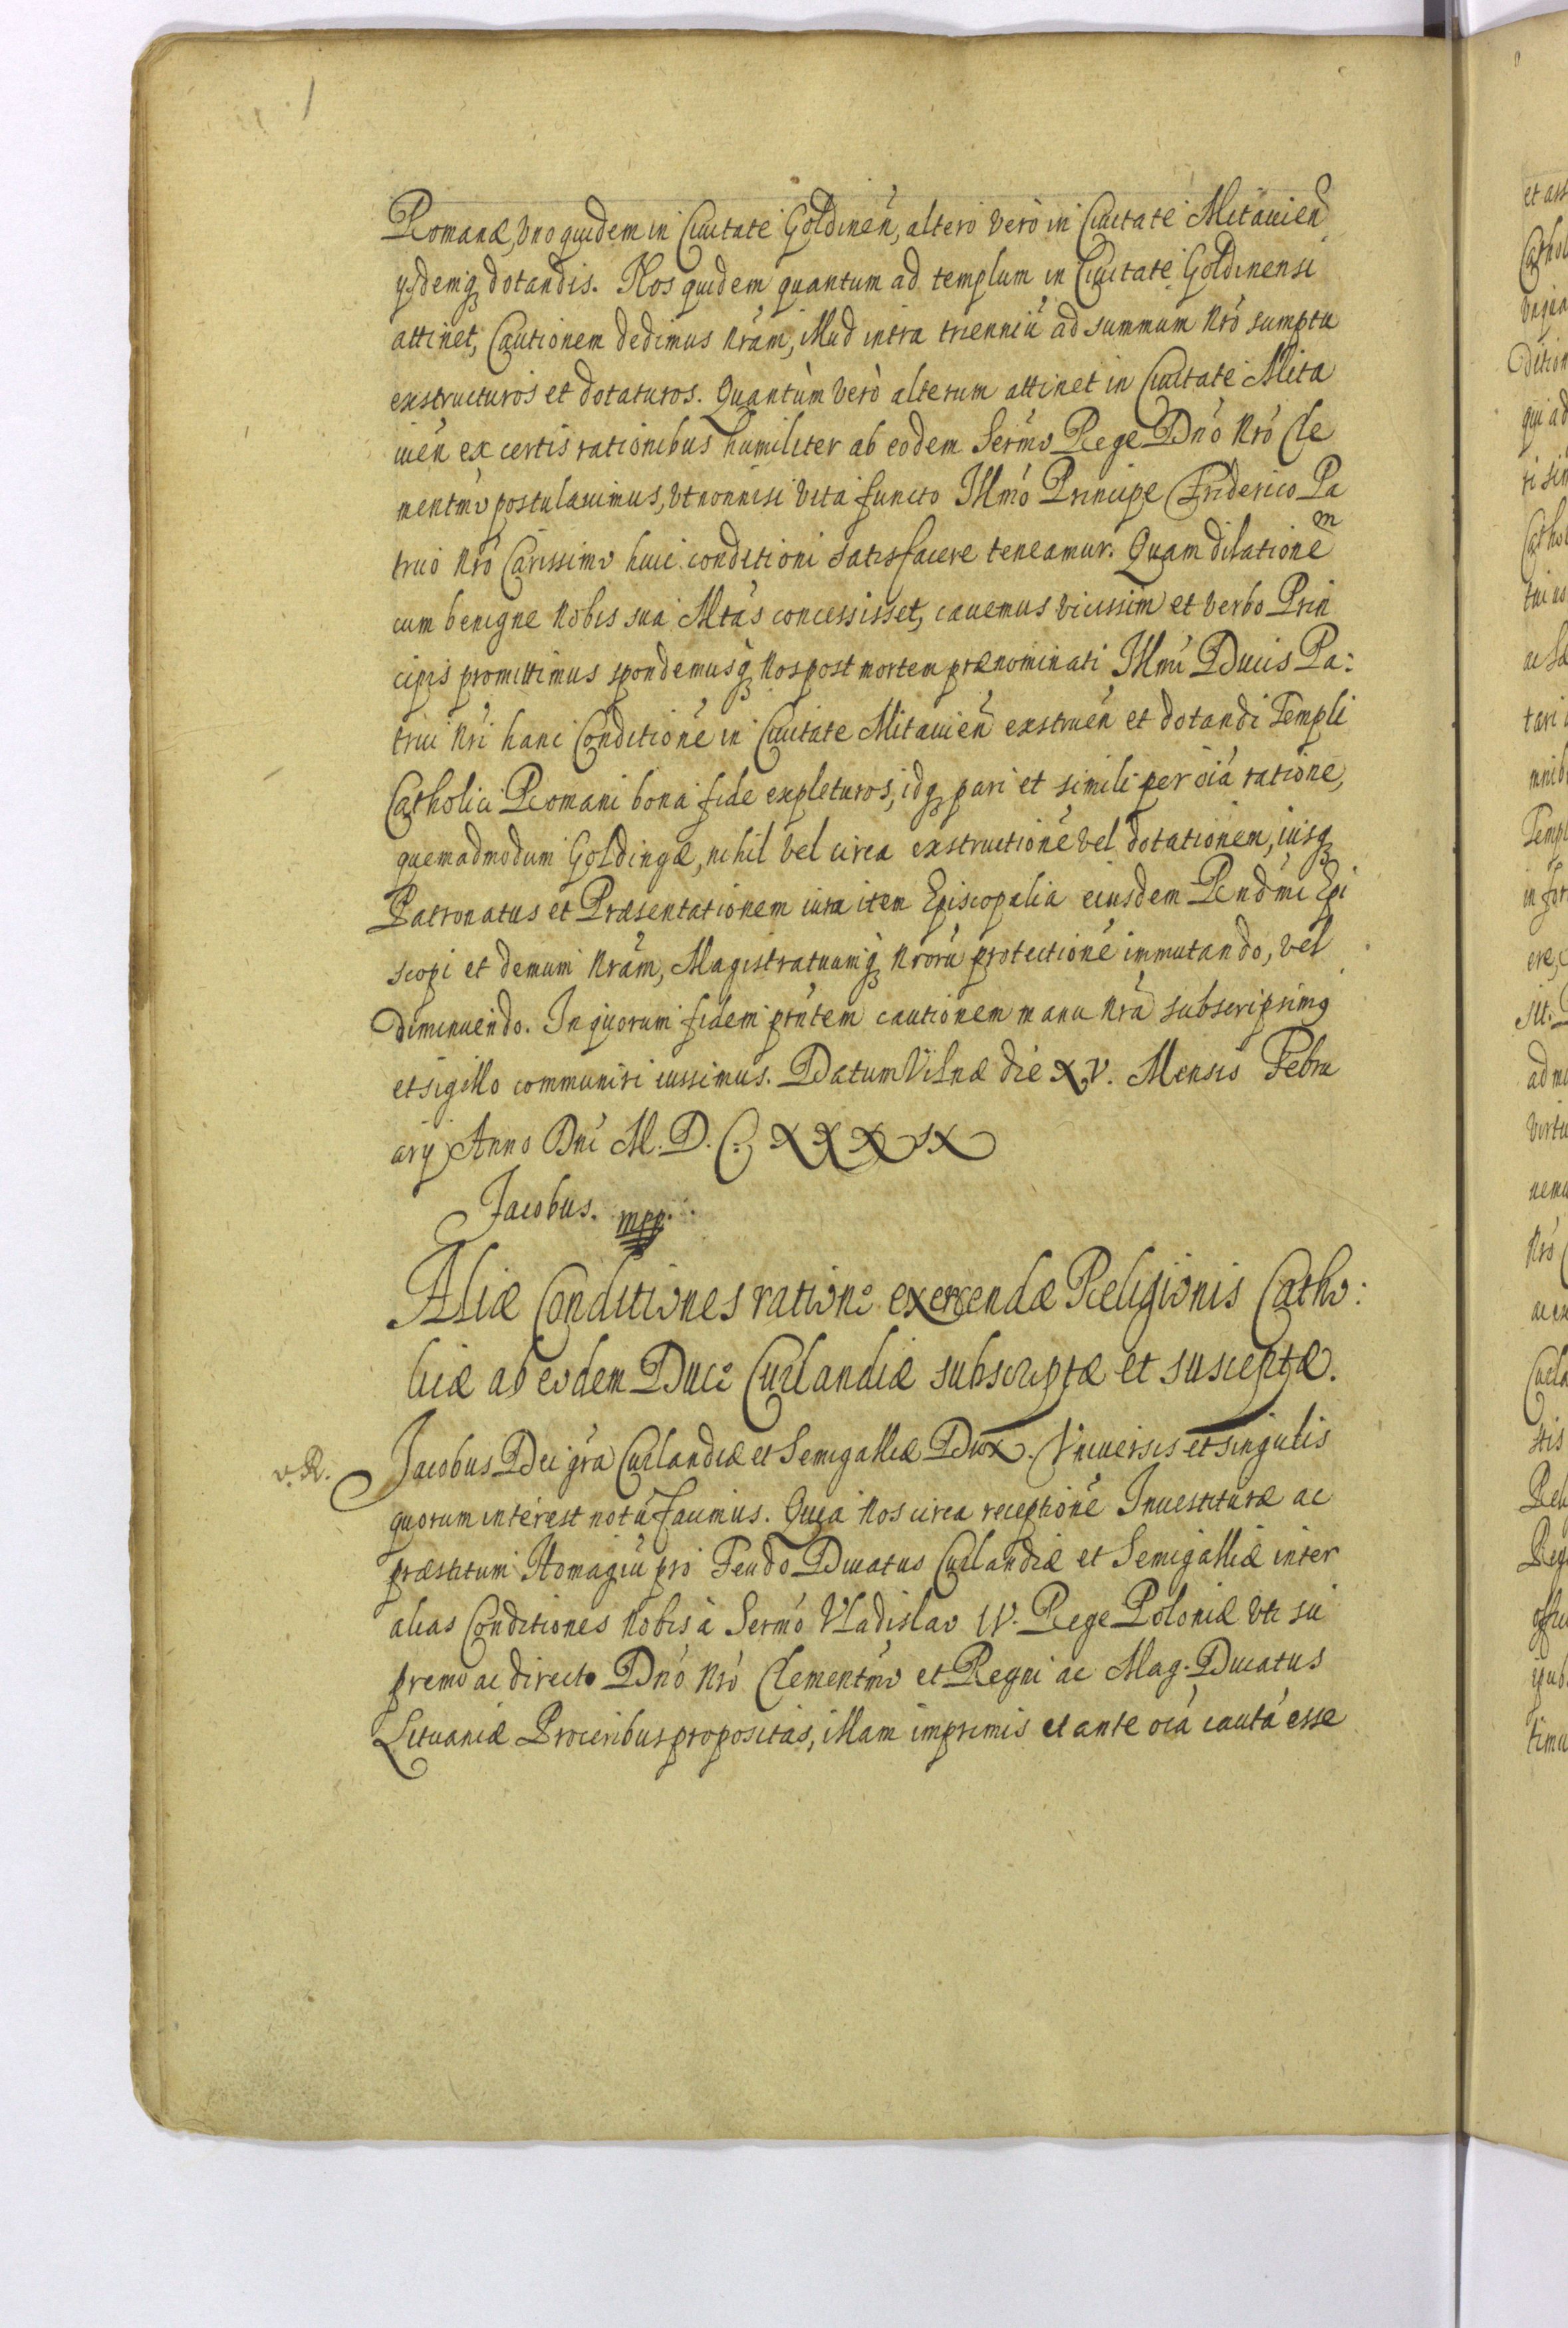 Romanæ, vno quidem in Ciuitate Goldinen̄, altero verò in Ciuitate Mitauien̄
ÿsdemq dotandis. Nos quidem quantum ad templum in Ciuitate Goldinensi
attinet, Cautionem dedimus nr̃am, illud intra trienniũ ad summum nr̃o sumptu
exstructuros et dotaturos. Quantùm verò alterum attinet in Ciuitate Mita
uien̄ ex certis rationibus humiliter ab eodem Serm̃o Rege Dño Nr̃o Cle
mentm̃o postulauimus, vt nonnisi vita functo Illm̃o Principe Friderico Pa
truo Nr̃o Carissimo huic conditioni satisfacere teneamur. Quam dilationem
cum benigne Nobis sua Mtãs concessisset, cauemus vicissim et verbo Prin
cipis promittimus spondemusq Nos post mortem prænominati Illmĩ Ducis Pa:
trui Nr̃i hanc Conditionẽ in Ciuitate Mitauien̄ exstruen̄ et dotandi Templi
Catholici Romani bona fide expleturos, idq pari et simili per oĩa ratione,
quemadmodum Goldingæ, nihil vel circa exstructionẽ vel dotationem, iusq
Patronatus et Præsentationem iura item Episcopalia eiusdem Rndm̃i Epi
scopi et demum Nr̃am, Magistratuumq Nrorũ protectionẽ immutando, vel
diminuendo. In quorum fidem prñtem cautionem manu Nr̃a subscripsimq
et sigillo communiri iussimus. Datum Vilnæ die XV. Mensis Febru
arÿ Anno Dnĩ M. D. C. XXXIX
Jacobus. mpp.
Aliæ Conditiones ratione exercendæ Religionis Catho:
licæ ab eodem Duce Curlandiæ subscriptæ et susceptæ.
v. R.
Jacobus Dei gr̃a Curlandiæ et Semigalliæ Dux. Vniuersis et singulis
quorum interest notũ facimus. Quia Nos circa receptionẽ Inuestituræ ac
præstitum Homagiũ pro Feudo Ducatus Curlandiæ et Semigalliæ inter
alias Conditiones Nobis à Serm̃o Vladislao IV. Rege Poloniæ vti su
premo ac directo Dño Nr̃o Clementm̃o et Regni ac Mag. Ducatus
Lituaniæ Proceribus propositas, illam imprimis et ante oĩa cautã esse